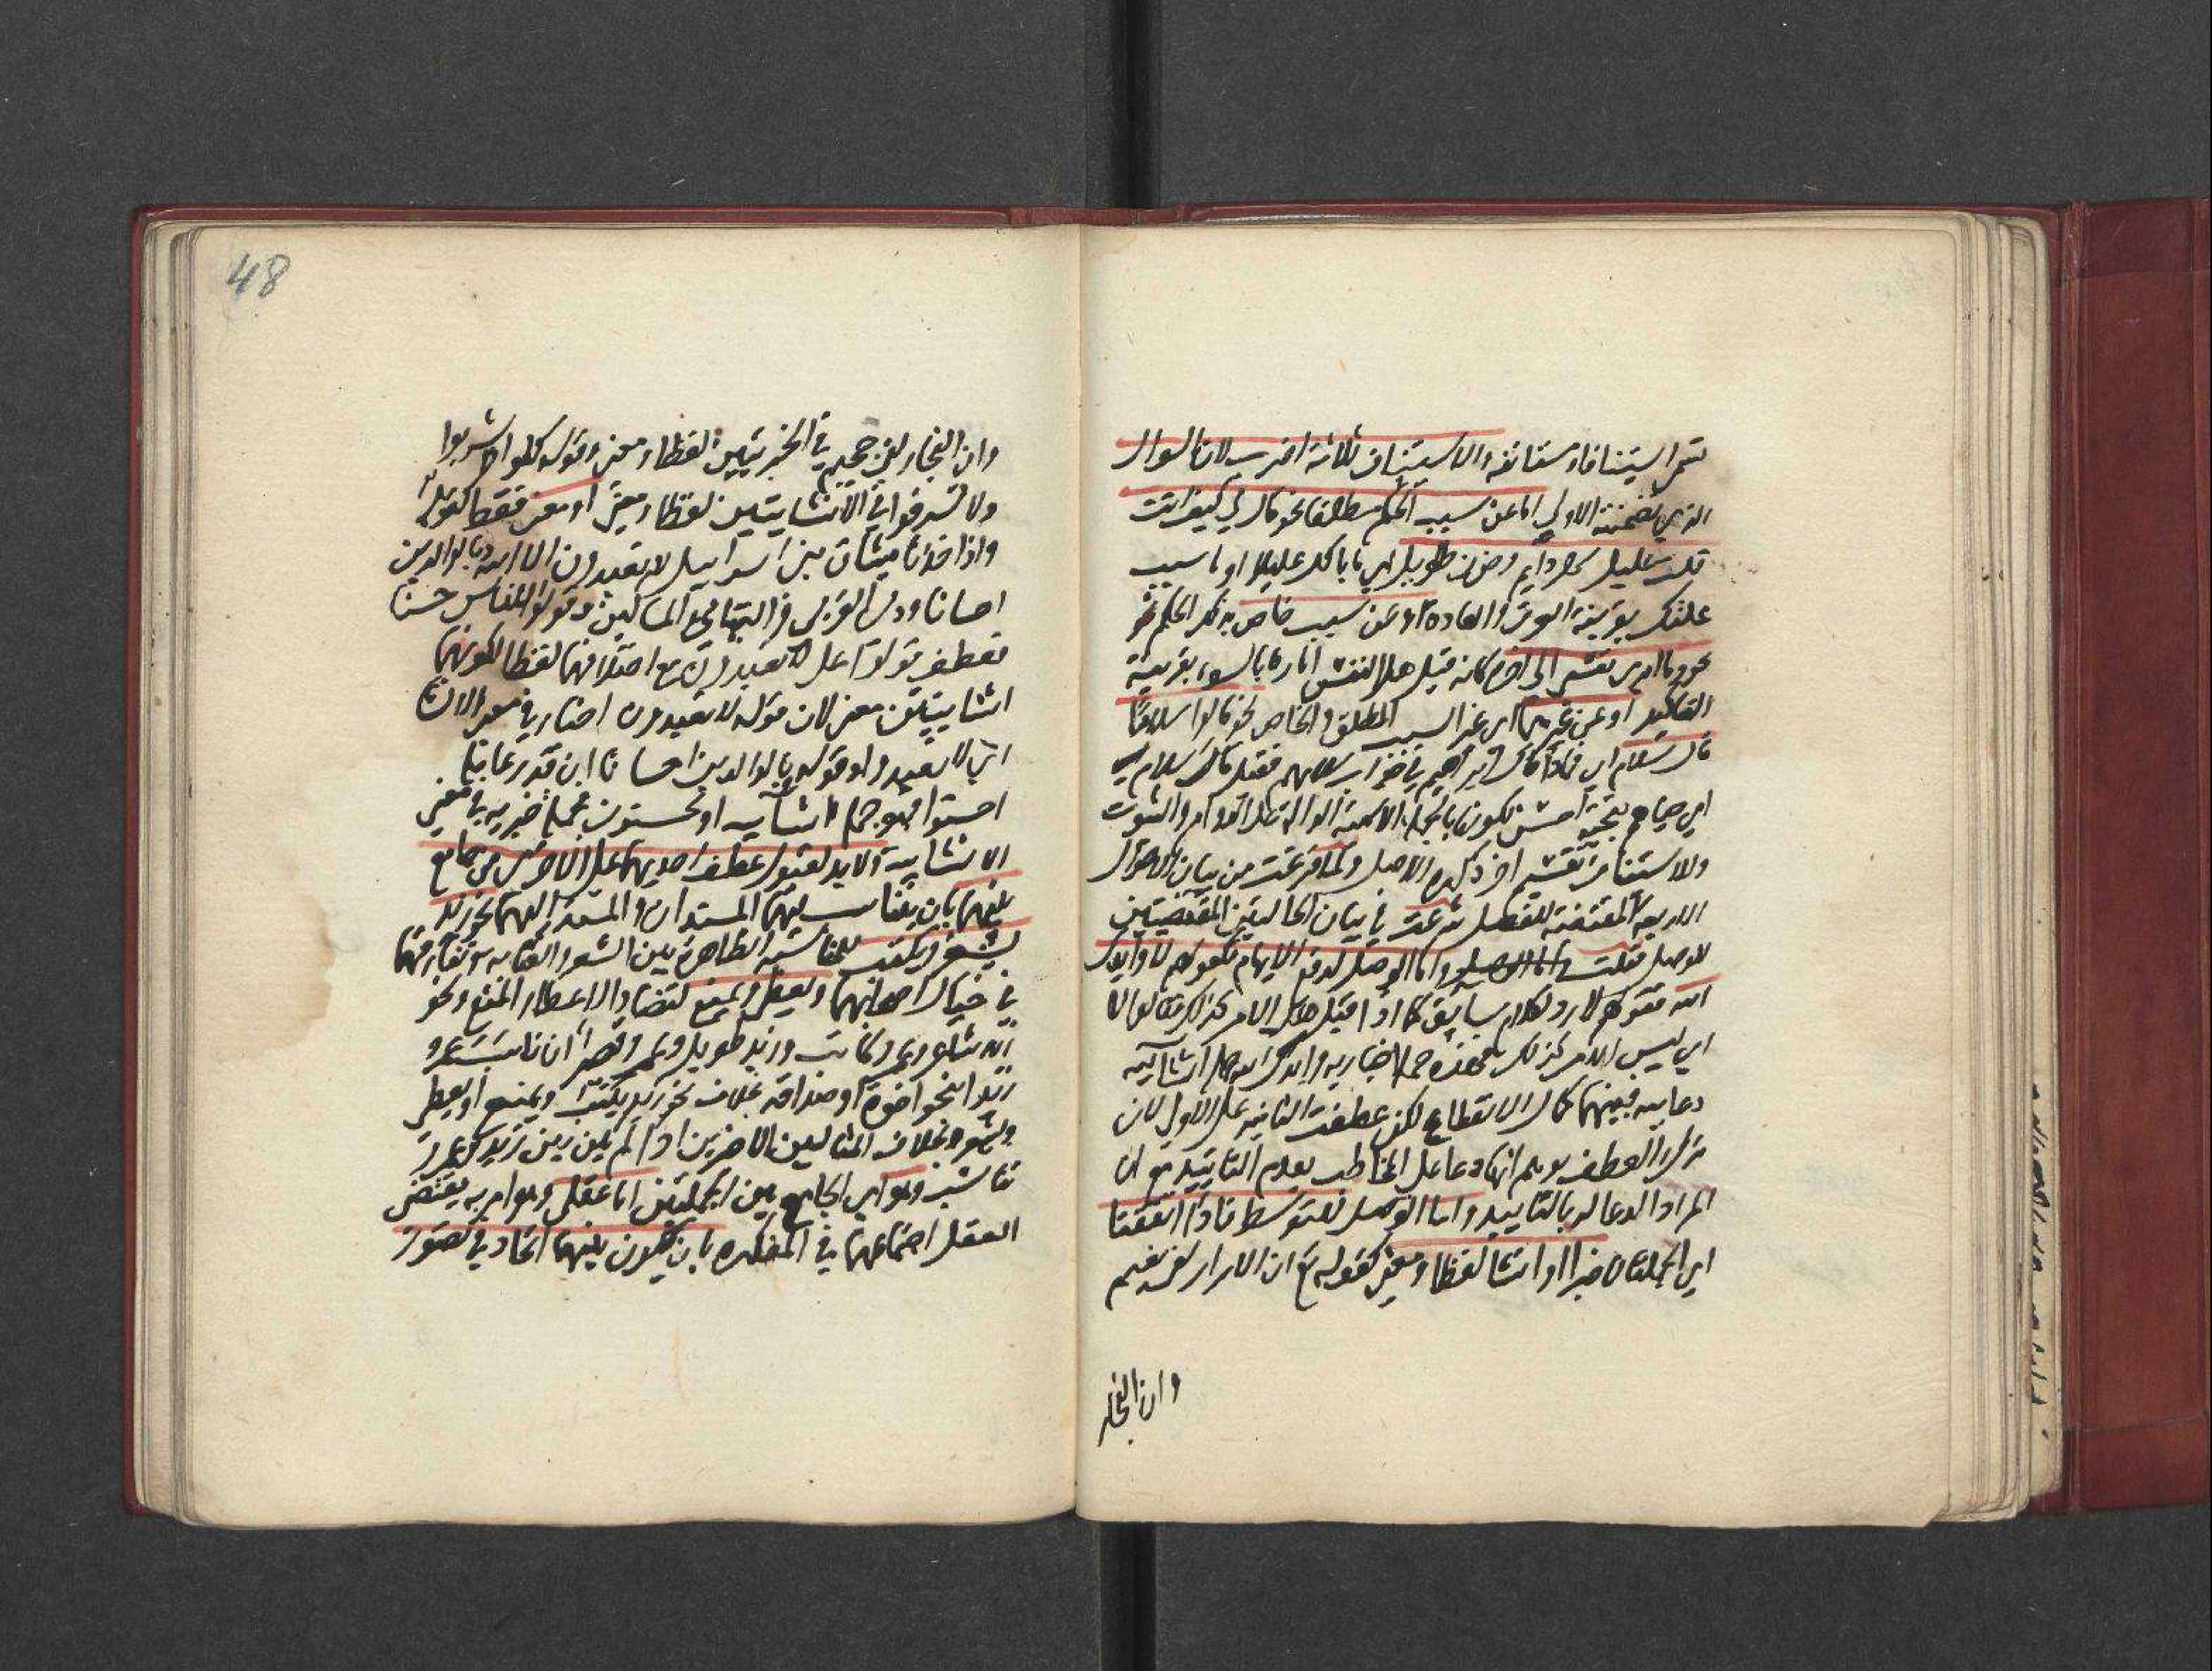 تسمى استينافا ومستانفة والاستيناف ثلاثة اضرب لان السوال
الذي تضمنته الاولى اما عن سبب الحكم مطلقا نحو قال لي كيف انت
قلت عليل سهر دايم وحزن طويل اي ما بالك عليلا او ما سبب
علتك بقرينة العرف والعادة او عن سبب خاص بذلك الحكم
نحو وما ابرئ نفسي الى اخره كانه قيل هل النفس امارة بالسوء بقرينة
التاكيد او عن غيرهما اي غير السبب المطلق والخاص نحو قالوا سلاما
قال سلام اي فماذا قال ابراهيم في جواب سلامهم فقيل قال سلام
اي حياهم بتحية احسن لكونها بالجملة الاسمية الدالة على الدوام والثبوت
وللاستيناف تقسيم اخر ذكره في الاصل ولما فرغت من بيان الاحوال
الاربعة المقتضية للفصل شرعت في بيان الحالتين المقتضيتين
للوصل فقلت واما الوصل لدفع الايهام فكقولهم لا وايدك
الله فقولهم لا رد لكلام سابق كما اذا قيل هل الامر كذلك فقالوا لا
اي ليس الامر كذلك فهذه جملة اخبارية وايدك الله جملة انشائية
دعاييه فبينهما كمال الانقطاع لكن عطفت الثانية على الاولى لان
ترك العطف يوهم انها دعا على المخاطب بعدم التاييد مع ان
المراد الدعا له بالتاييد واما الوصل للتوسط فاذا اتفقتا
اي الجملتان خبرا او انشا لفظا ومعنى كقوله تع ان الابرار لفي نعيم
وان الفجار
48
وان الفجار لفي جحيم في الخبريتين لفظا ومعنى وقوله كلوا واشربوا
ولا تسرفوا في الانشايتين لفظا ومعنى او معنى فقط كقوله
واذا اخذنا ميثاق بني اسرائيل لا تعبدون الا الله وبالوالدين
احسانا وذي القربى واليتامى والمساكين وقولوا للناس حسنا
فعطف قولوا على لا تعبدون مع اختلافهما لفظا لكونهما
انشايتين معنى لان قوله لا تعبدون اخبار في معنى الانشا
اي لا تعبدوا وقوله وبالوالدين احسانا ان قدر عاملها
احسنوا فهو جملة انشائيه او تحسنون فجملة خبريه في معنى
الانشايية ولا بد لقبول عطف احديهما على الاخرى من جامع
بينهما بان يتناسب فيهما المسندان والمسند اليهما نحو زيد
يشعر ويكتب للمناسبة الظاهرة بين الشعر والكتابه وتقارنهما
في خيال اصحابهما ويعطي ويمنع لتضاد الاعطا والمنع ونحو
زيد شاعر وعمرو كاتب وزيد طويل وعمرو قصير ان ناسب عمرو
زيدا بنحو اخوة او صداقة بخلاف نحو زيد يكتب ويمنع او يعطي
ويشعر وبخلاف المثالين الاخيرين اذا لم يكن بين زيد وعمرو
تناسب وهو اي الجامع بين الجملتين اما عقلي وهو امر به يقتضي
العقل اجتماعهما في المفكره بان يكون بينهما اتحاد في تصور